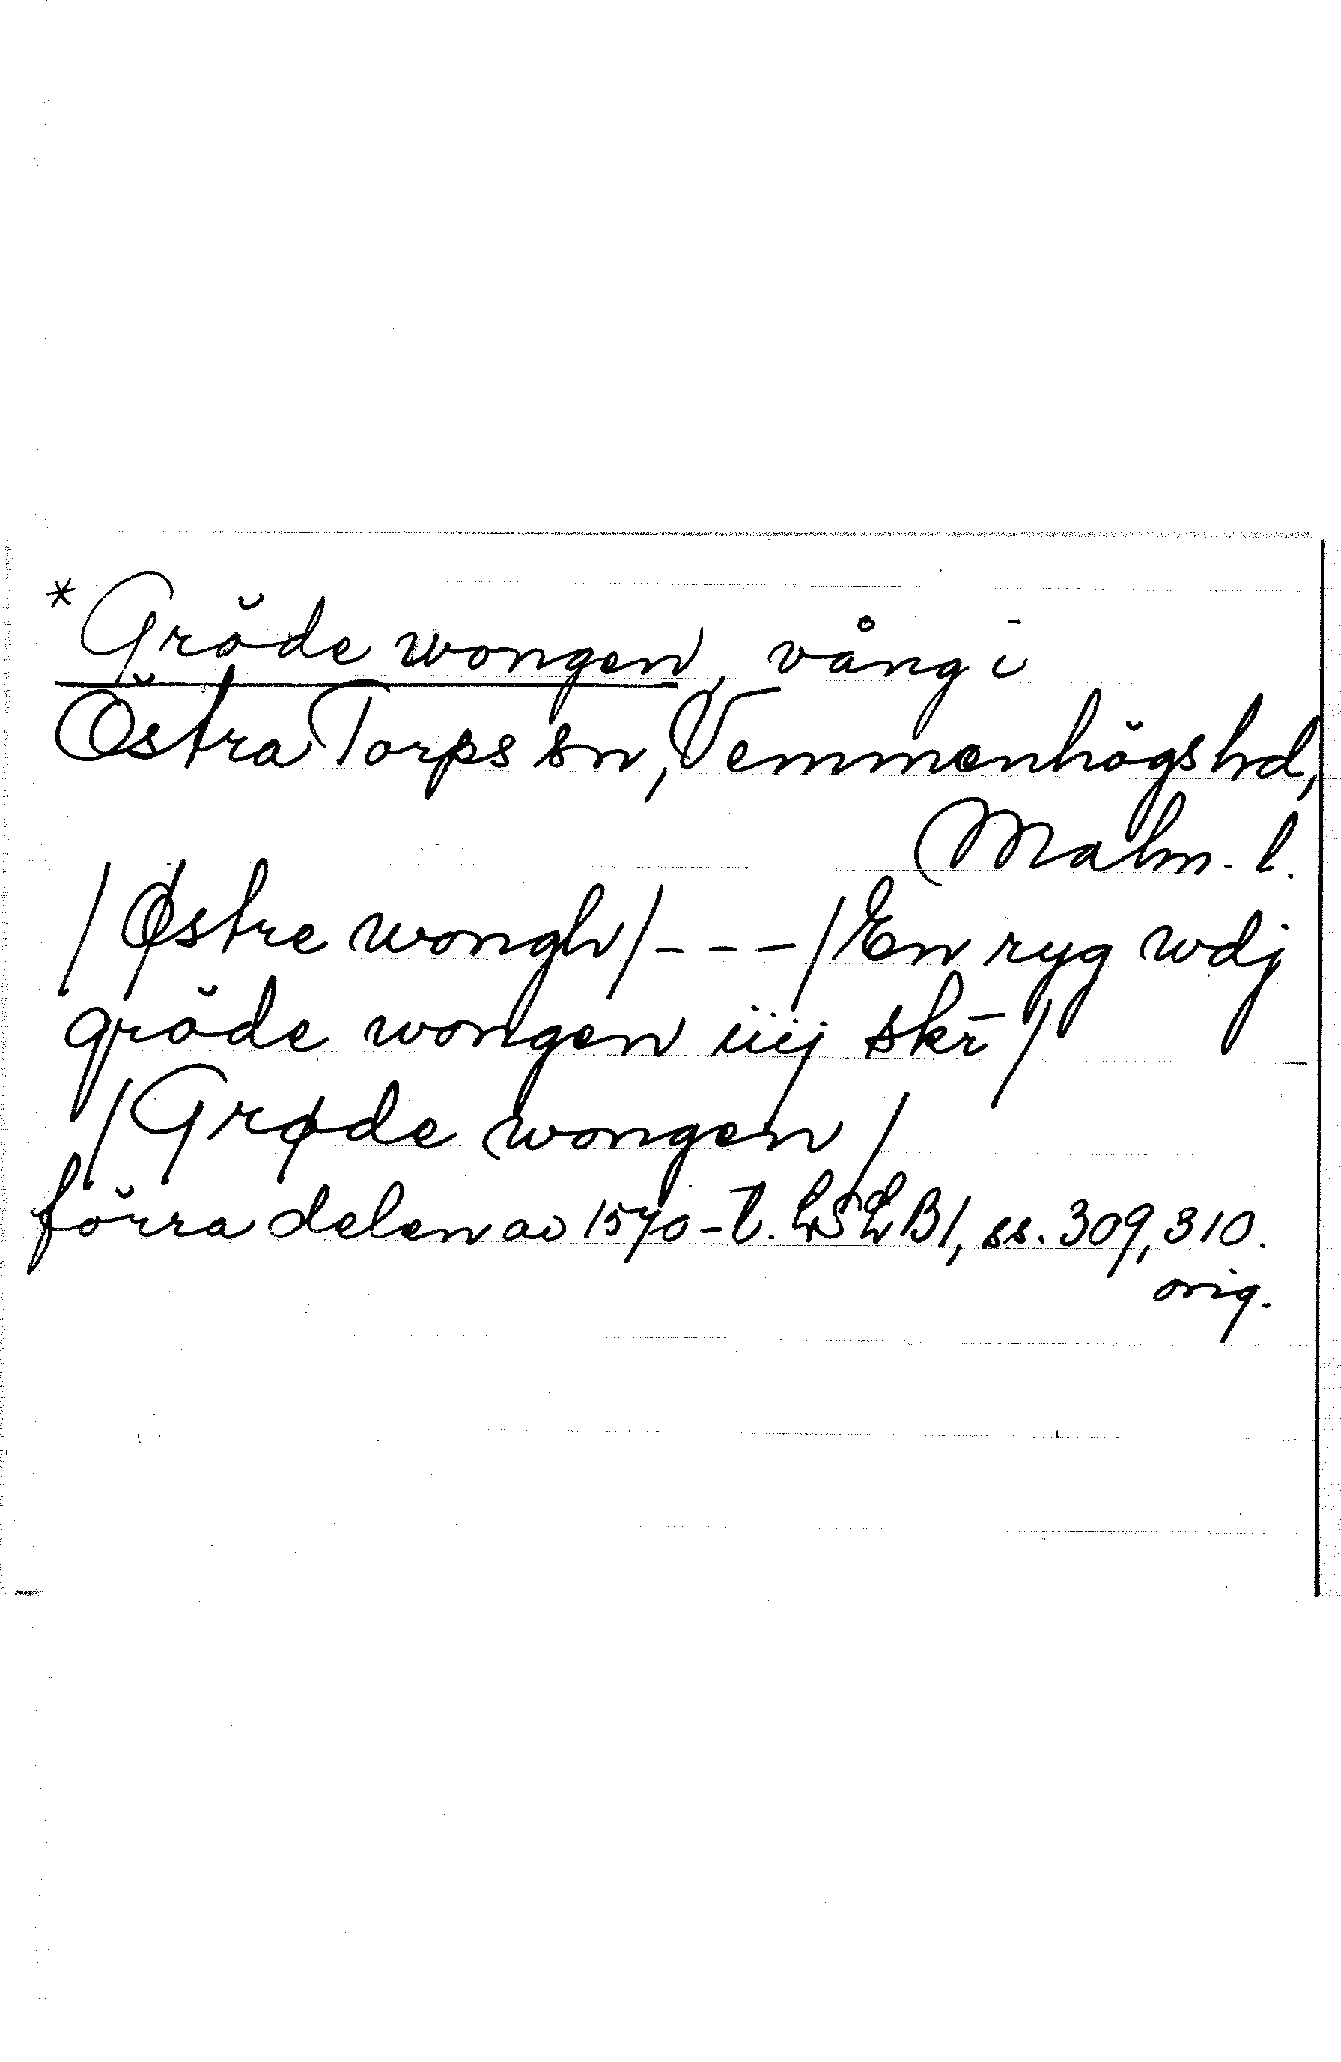 *Gröde wongen, vång i
Östra Torps sn, Vemmenhögs hd,
Malm. l.
/Østre wongh/ - - - /En ryg wdj
gröde wongen iiij skr̄/
/Grøde wongen/
förra delen av 1570-t. LSLB1, ss. 309, 310.
orig.